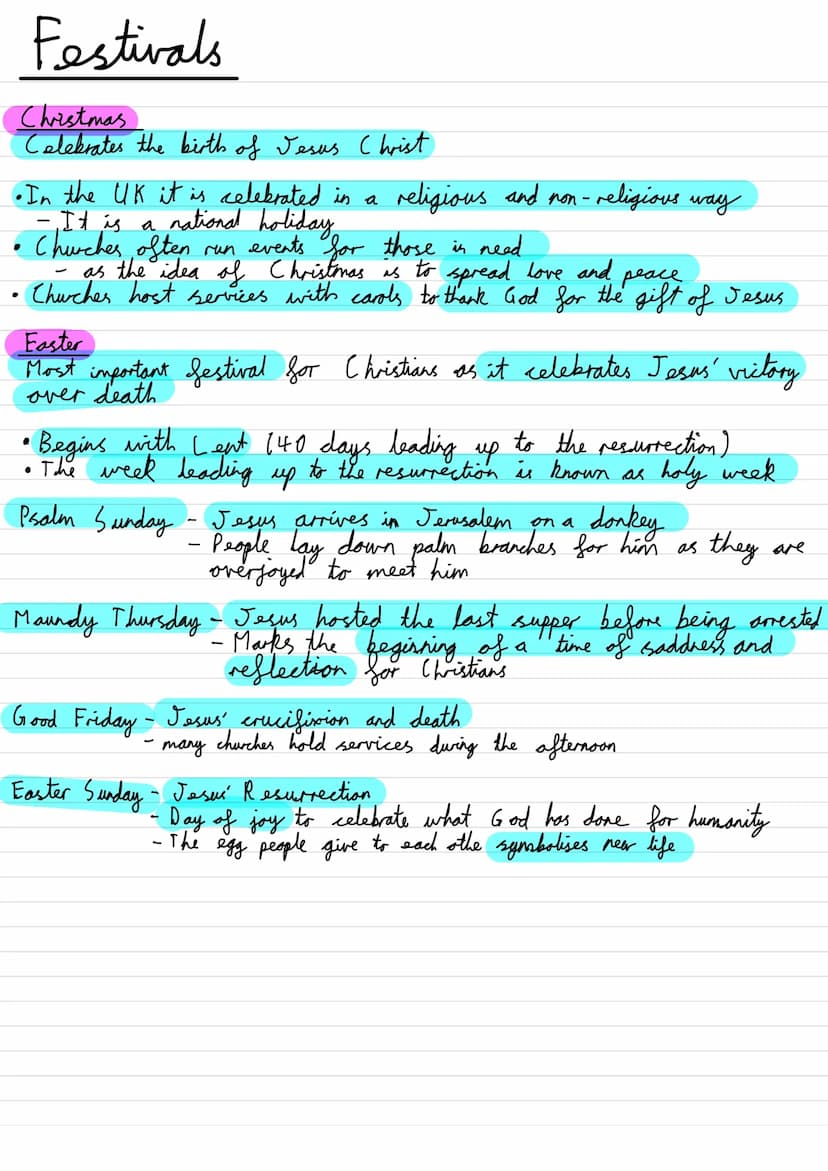 Festivals
Christmas
Celebrates the birth of Jesus Christ
•In the UK it is celebrated in a religious and non-religious way
- It is a national holiday
• Churches often run events for those in need
- as the idea of Christmas is to spread love and peace
• Churches host services with carols to thank God for the gift of Jesus
Easter
Most important festival for Christians as it celebrates Jesus' victory
over death
• Begins with Lent (40 days leading up to the resurrection)
• The week leading up to the resurrection is known as holy week
Psalm Sunday - Jesus arrives in Jerusalem on a donkey
- People lay down palm branches for him as they are
overjoyed to meet him
Maundy Thursday - Jesus hosted the last supper before being arrested
- Marks the beginning of a time of saddness and
reflection for Christians
Good Friday - Jesus' crucifixion and death
- many churches hold services during the afternoon
Easter Sunday - Jesus' Resurrection
- Day of joy to celebrate what God has done for humanity
- The egg people give to each othe symbolises new life